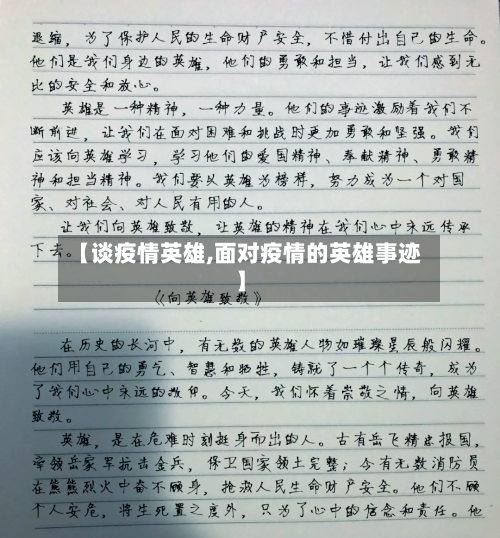 退缩，为了保护人民的生命财产安全，不惜付出自己的生命。
他们是我们身边的英雄，他们的勇敢和担当，让我们感到无
比的安全和放心。
英雄是一种精神，一种力量。他们的事迹激励着我们不
断前进，让我们在面对困难和挑战时更加勇敢和坚强。我们
应该向英雄学习，学习他们的爱国精神、奉献精神、勇敢精
神和担当精神。我们要以英雄为榜样，努力成为一个对国
家、对社会、对人民有用的人。
让我们向英雄致敬，让英雄的精神在我们心中永远传承
下去。
【谈疫情英雄,面对疫情的英雄事迹
】
《向英雄致敬》
在历史的长河中，有无数的英雄人物如璀璨星辰般闪耀。
他们用自己的勇气、智慧和牺牲，铸就了一个个传奇，成为
了我们心中永远的敬仰。今天，我们怀着崇敬之情，向英雄
致敬。
英雄，是在危难时刻挺身而出的人。古有岳飞精忠报国，
率领岳家军抗击金兵，保卫国家领土完整；今有无数消防员
在熊熊烈火中奋不顾身，抢救人民生命财产安全。他们不顾
个人安危，将生死置之度外，只为了心中的信念和责任。他